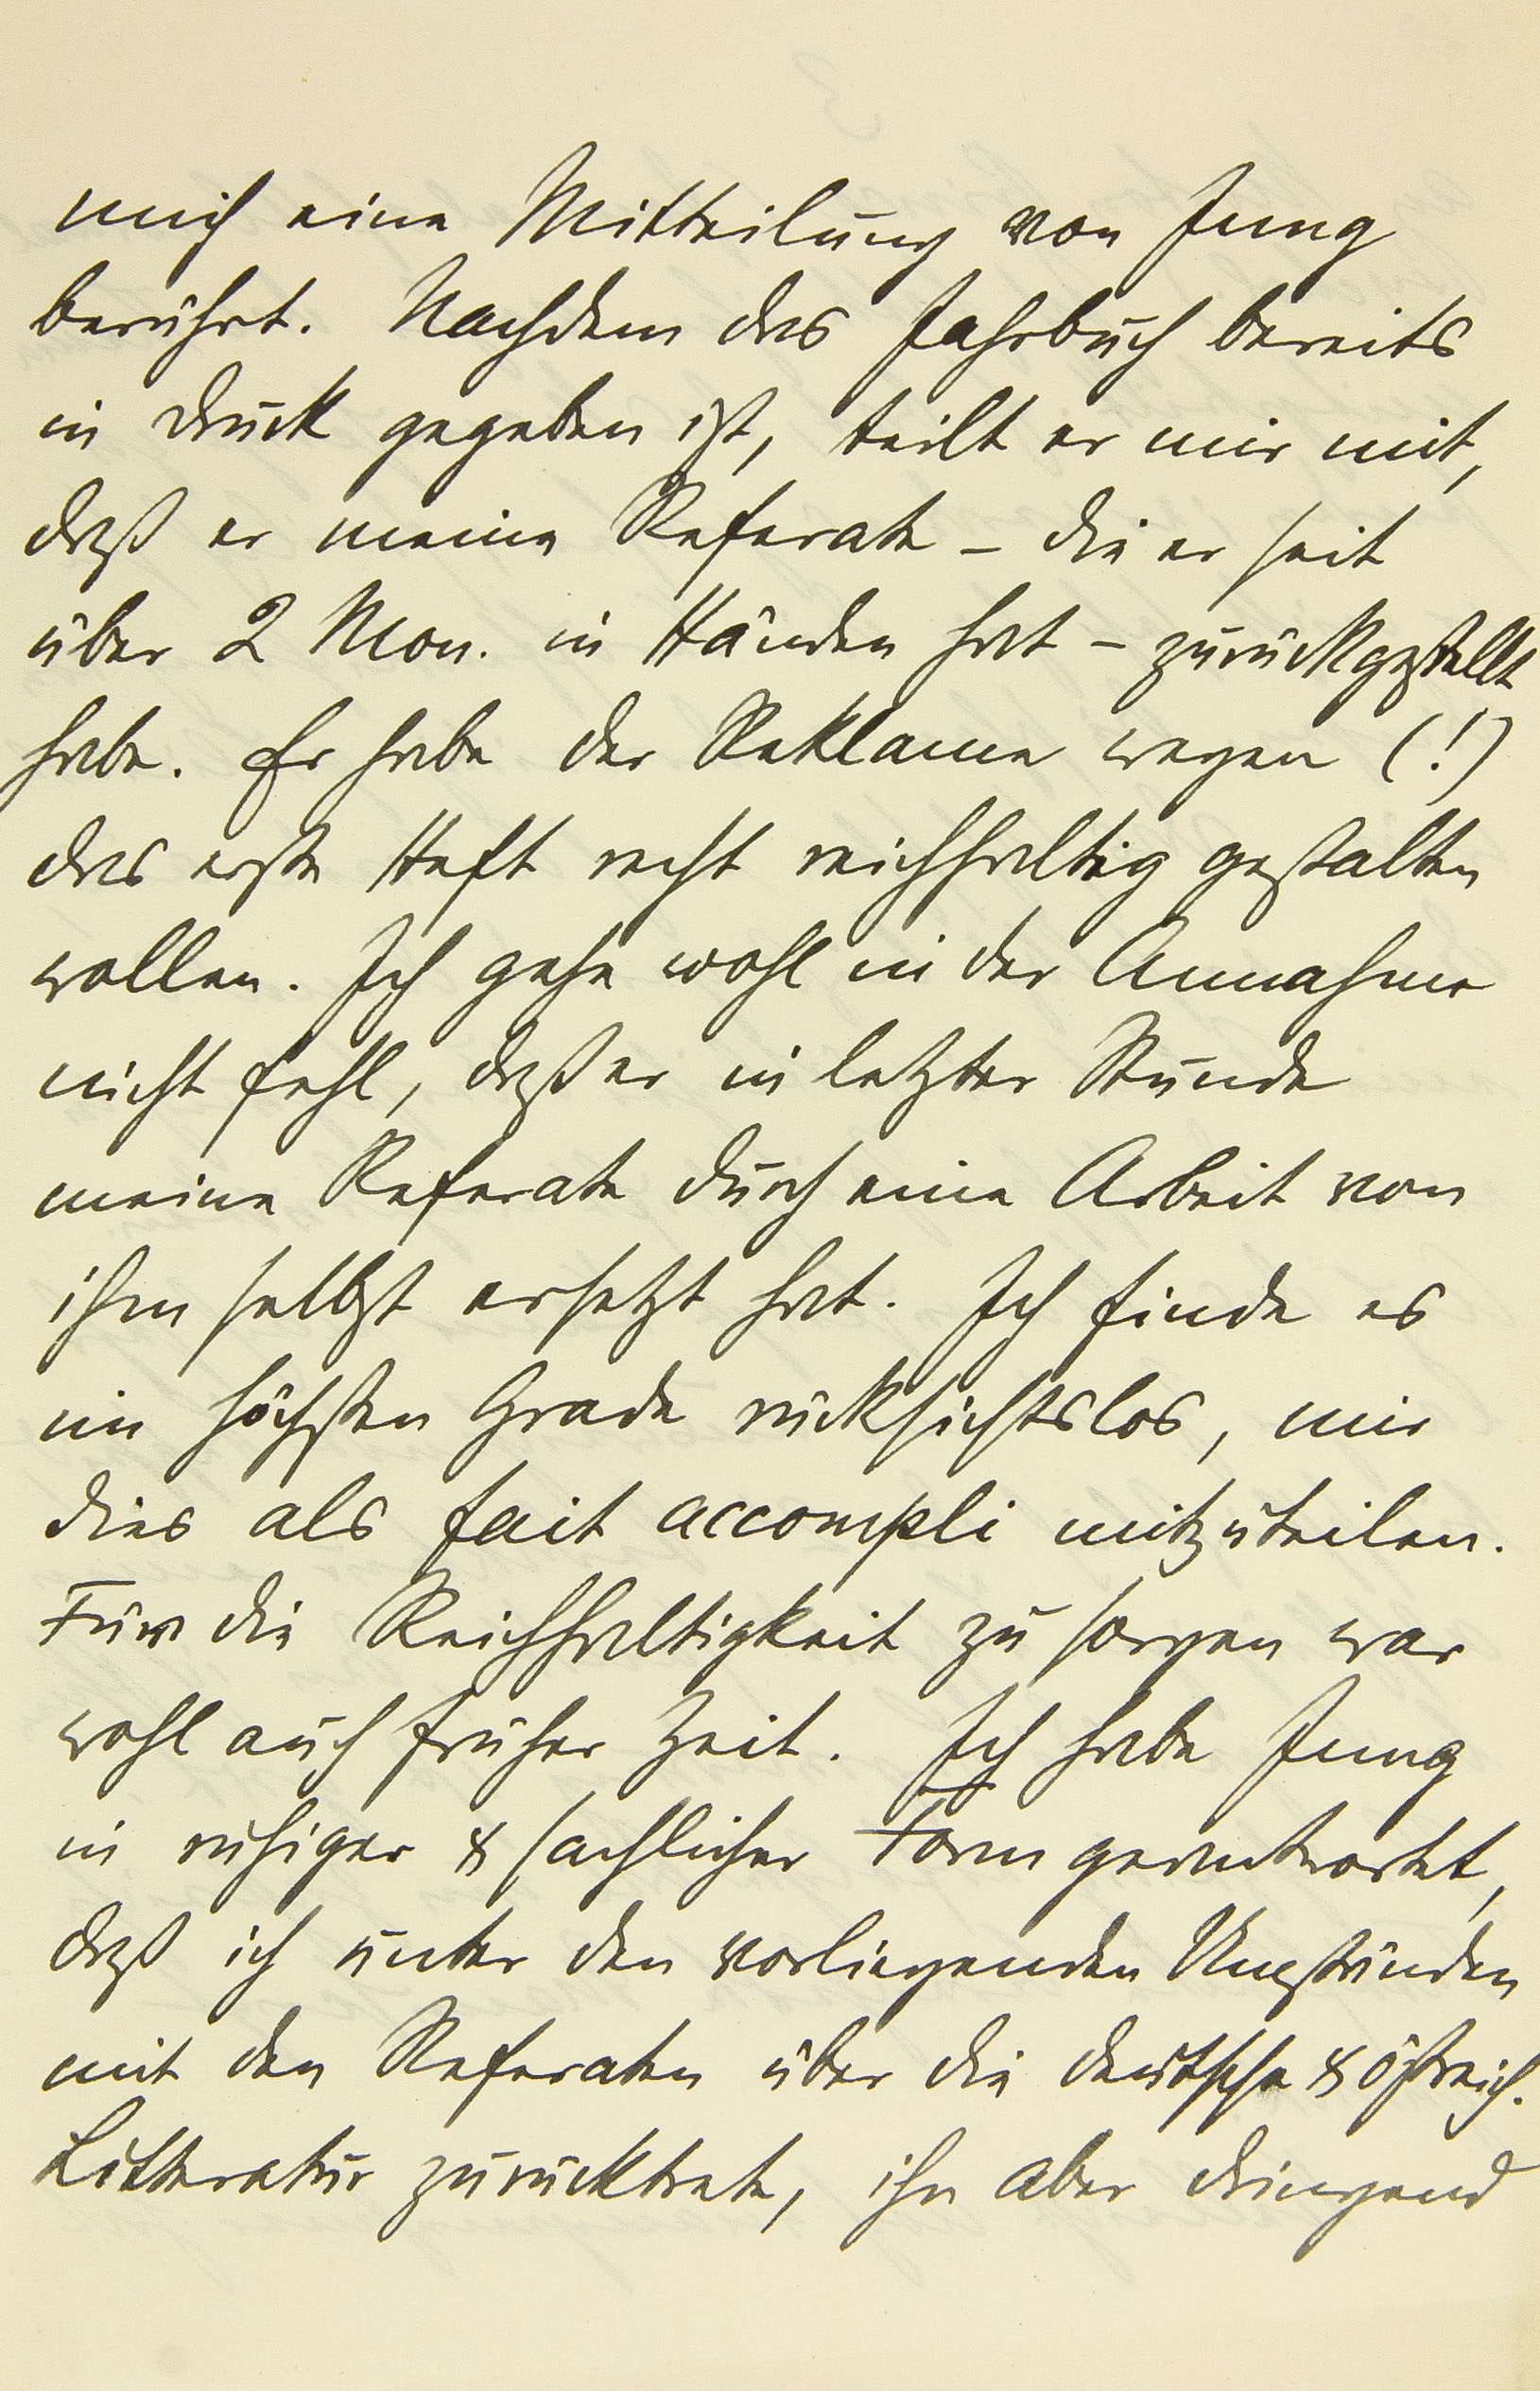 mich eine Mitteilung von Jung
berührt. Nachdem das Jahrbuch bereits
in Druck gegeben ist, teilt er mir mit,
daß er meine Referate – die er seit
über 2 Mon. in Händen hat – zurückgestellt
habe. Er habe der Reklame wegen (!)
das erste Heft recht reichhaltig gestalten
wollen. Ich gehe wohl in der Annahme
nicht fehl, daß er in letzter Stunde
meine Referate durch eine Arbeit von
ihm selbst ersetzt hat. Ich finde es
im höchsten Grade rücksichtslos, mir
dies als fait accompli mitzuteilen.
Für die Reichhaltigkeit zu sorgen war
wohl auch früher Zeit. Ich habe Jung
in ruhiger & sachlicher Form geantwortet,
daß ich unter den vorliegenden Umständen
mit den Referaten über die deutsche & östreich.
Litteratur zurücktrete, ihn aber dringend